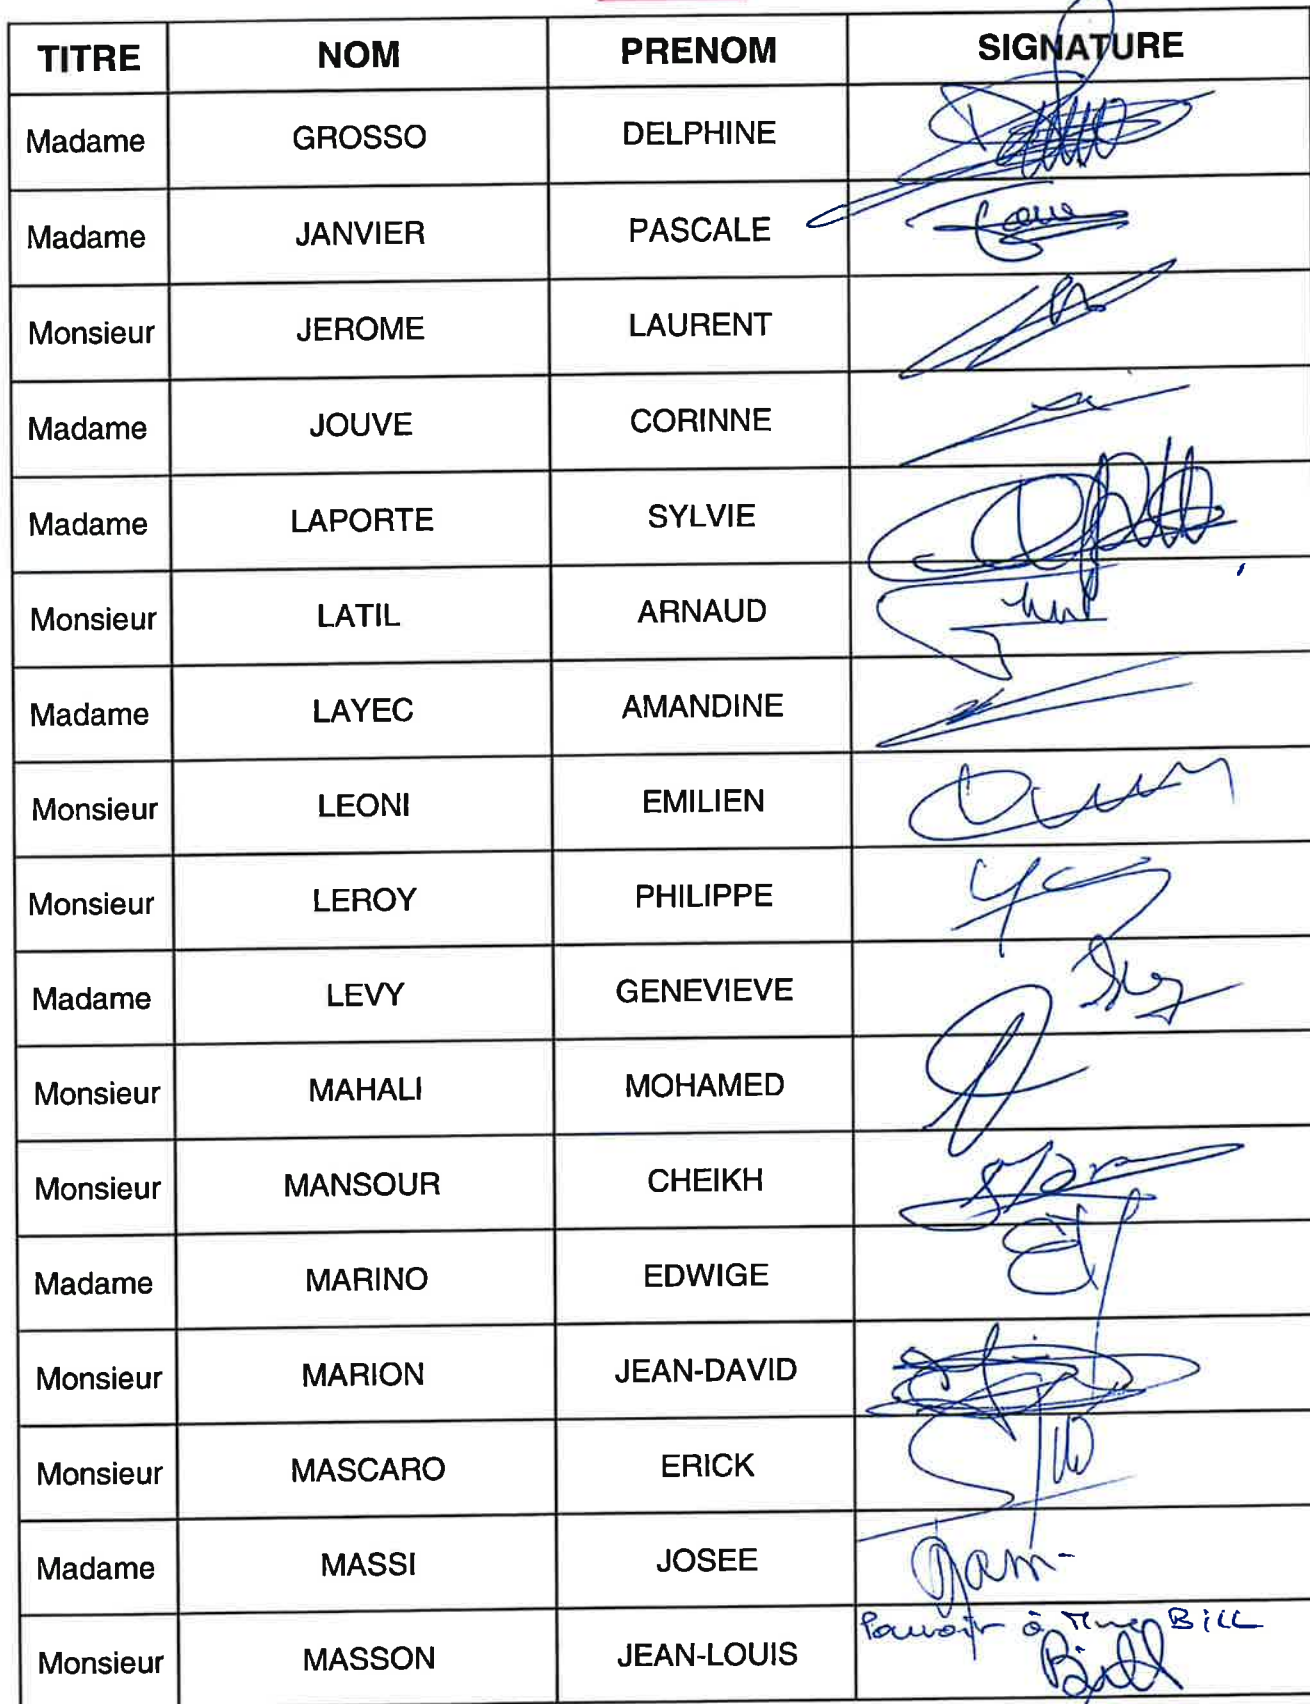 TITRE NOM PRENOM SIGNATURE
Madame GROSSO DELPHINE
Madame JANVIER PASCALE
Monsieur JEROME LAURENT
Madame JOUVE CORINNE
Madame LAPORTE SYLVIE
Monsieur LATIL ARNAUD
Madame LAYEC AMANDINE
Monsieur LEONI EMILIEN
Monsieur LEROY PHILIPPE
Madame LEVY GENEVIEVE
Monsieur MAHALI MOHAMED
Monsieur MANSOUR CHEIKH
Madame MARINO EDWIGE
Monsieur MARION JEAN-DAVID
Monsieur MASCARO ERICK
Madame MASSI JOSEE
Pouvoir à Mme BILL
Monsieur MASSON JEAN-LOUIS Bill